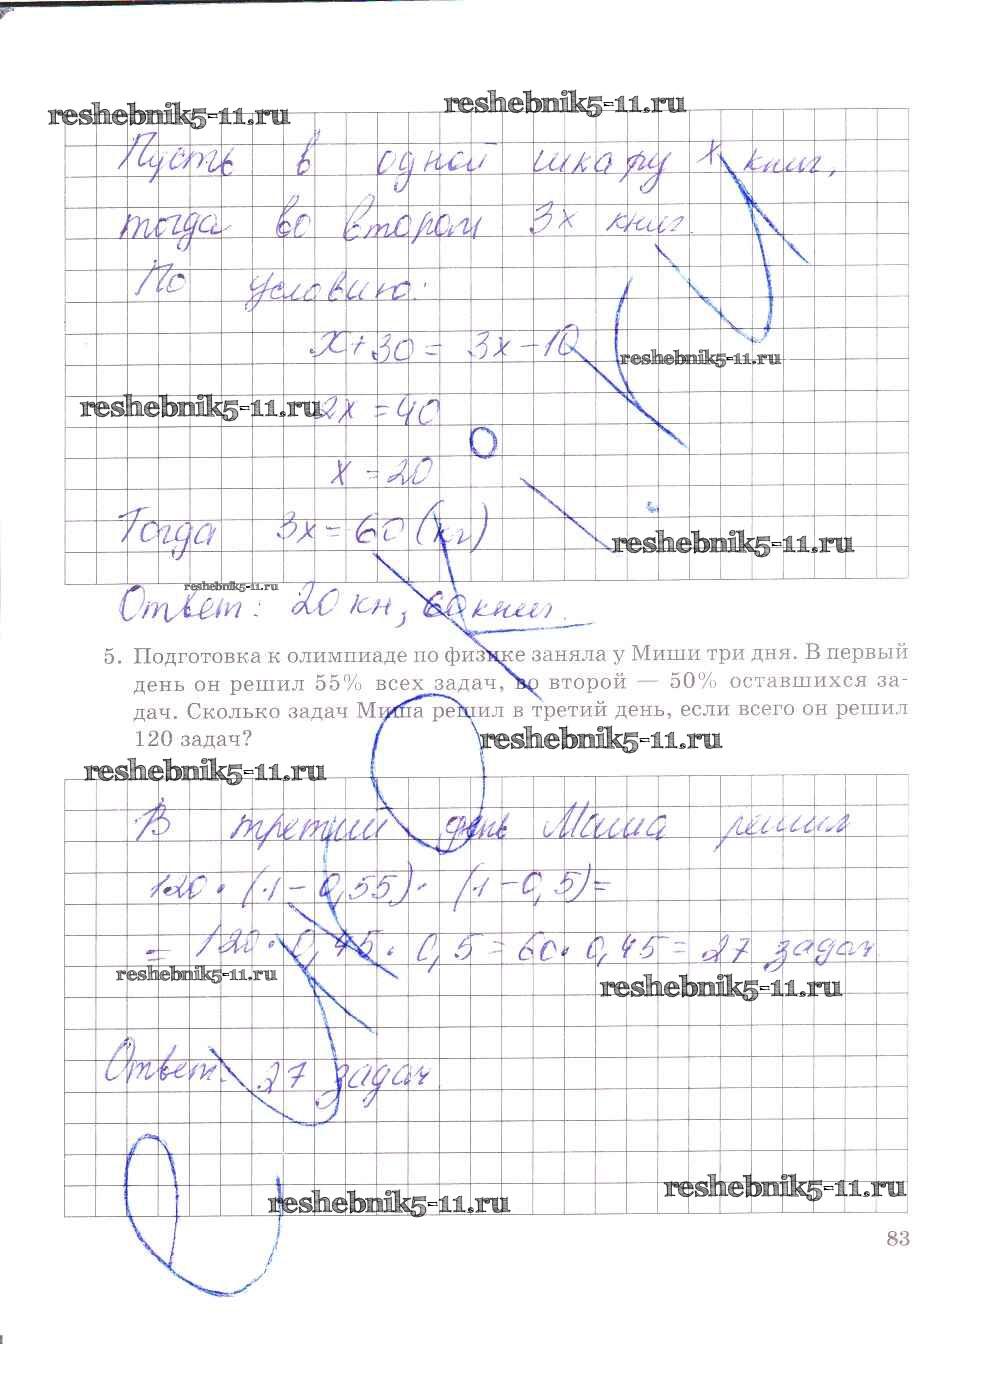 reshebnik5-11.ru
reshebnik5-11.ru
Пусть в одной шкафу x книг,
тогда во втором 3x книг.
По условию:
x+30 = 3x-10
reshebnik5-11.ru
reshebnik5-11.ru
2x = 40
x = 20
Тогда 3x = 60 (кг)
reshebnik5-11.ru
reshebnik5-11.ru
Ответ: 20 кн, 60 книг.
5. Подготовка к олимпиаде по физике заняла у Миши три дня. В первый
день он решил 55% всех задач, во второй — 50% оставшихся за-
дач. Сколько задач Миша решил в третий день, если всего он решил
120 задач?
reshebnik5-11.ru
reshebnik5-11.ru
В третий день Маша решил
120 · (1 - 0,55) · (1 - 0,5) =
= 120 · 0,45 · 0,5 = 60 · 0,45 = 27 задач
reshebnik5-11.ru
reshebnik5-11.ru
Ответ: 27 задач.
reshebnik5-11.ru
reshebnik5-11.ru
83